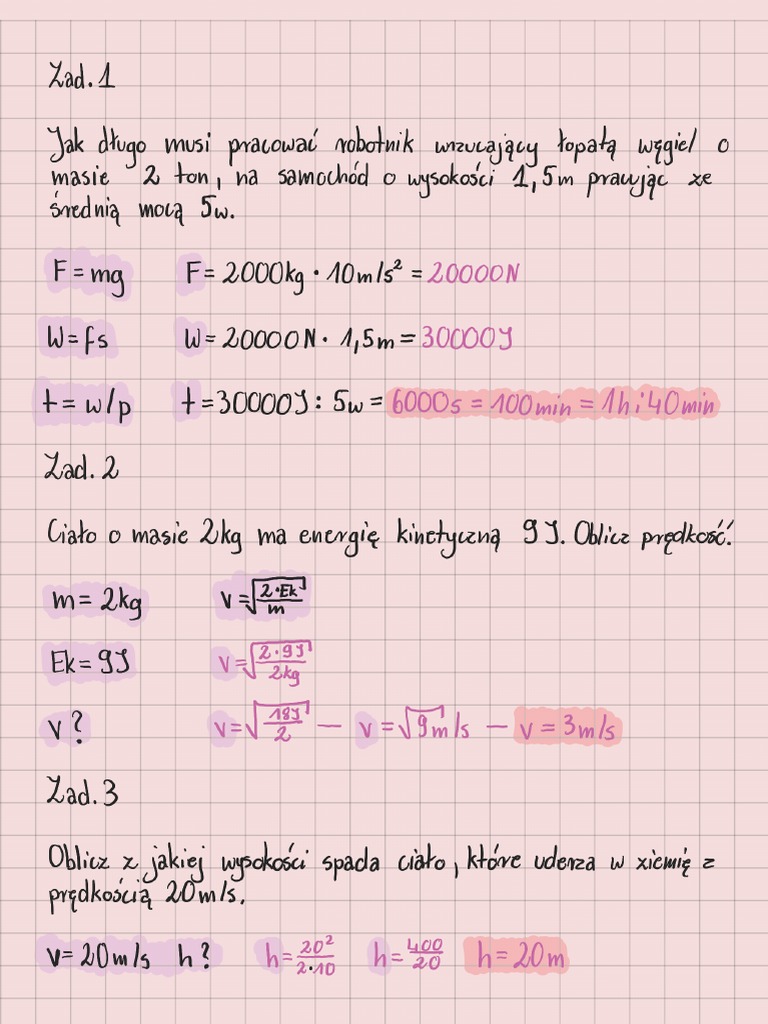 Zad. 1
Jak długo musi pracować robotnik wrzucający łopatą węgiel o
masie 2 ton, na samochód o wysokości 1,5m pracując ze
średnią mocą 5w.
F = mg F = 2000kg · 10m/s² = 20000N
W = fs W = 20000N · 1,5m = 30000J
t = w/p t = 30000J : 5w = 6000s = 100min = 1h i 40min
Zad. 2
Ciało o masie 2kg ma energię kinetyczną 9J. Oblicz prędkość.
m = 2kg v = √(2·Ek/m)
Ek = 9J v = √(2·9J/2kg)
v ? v = √(18J/2) — v = √9 m/s — v = 3m/s
Zad. 3
Oblicz z jakiej wysokości spada ciało, które uderza w ziemię z
prędkością 20m/s.
v = 20m/s h? h = 20²/2·10 h = 400/20 h = 20m